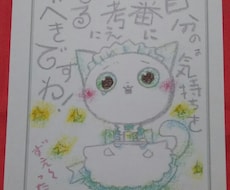 自分の
気持ちを
一番に
考え
る
べきですわ!